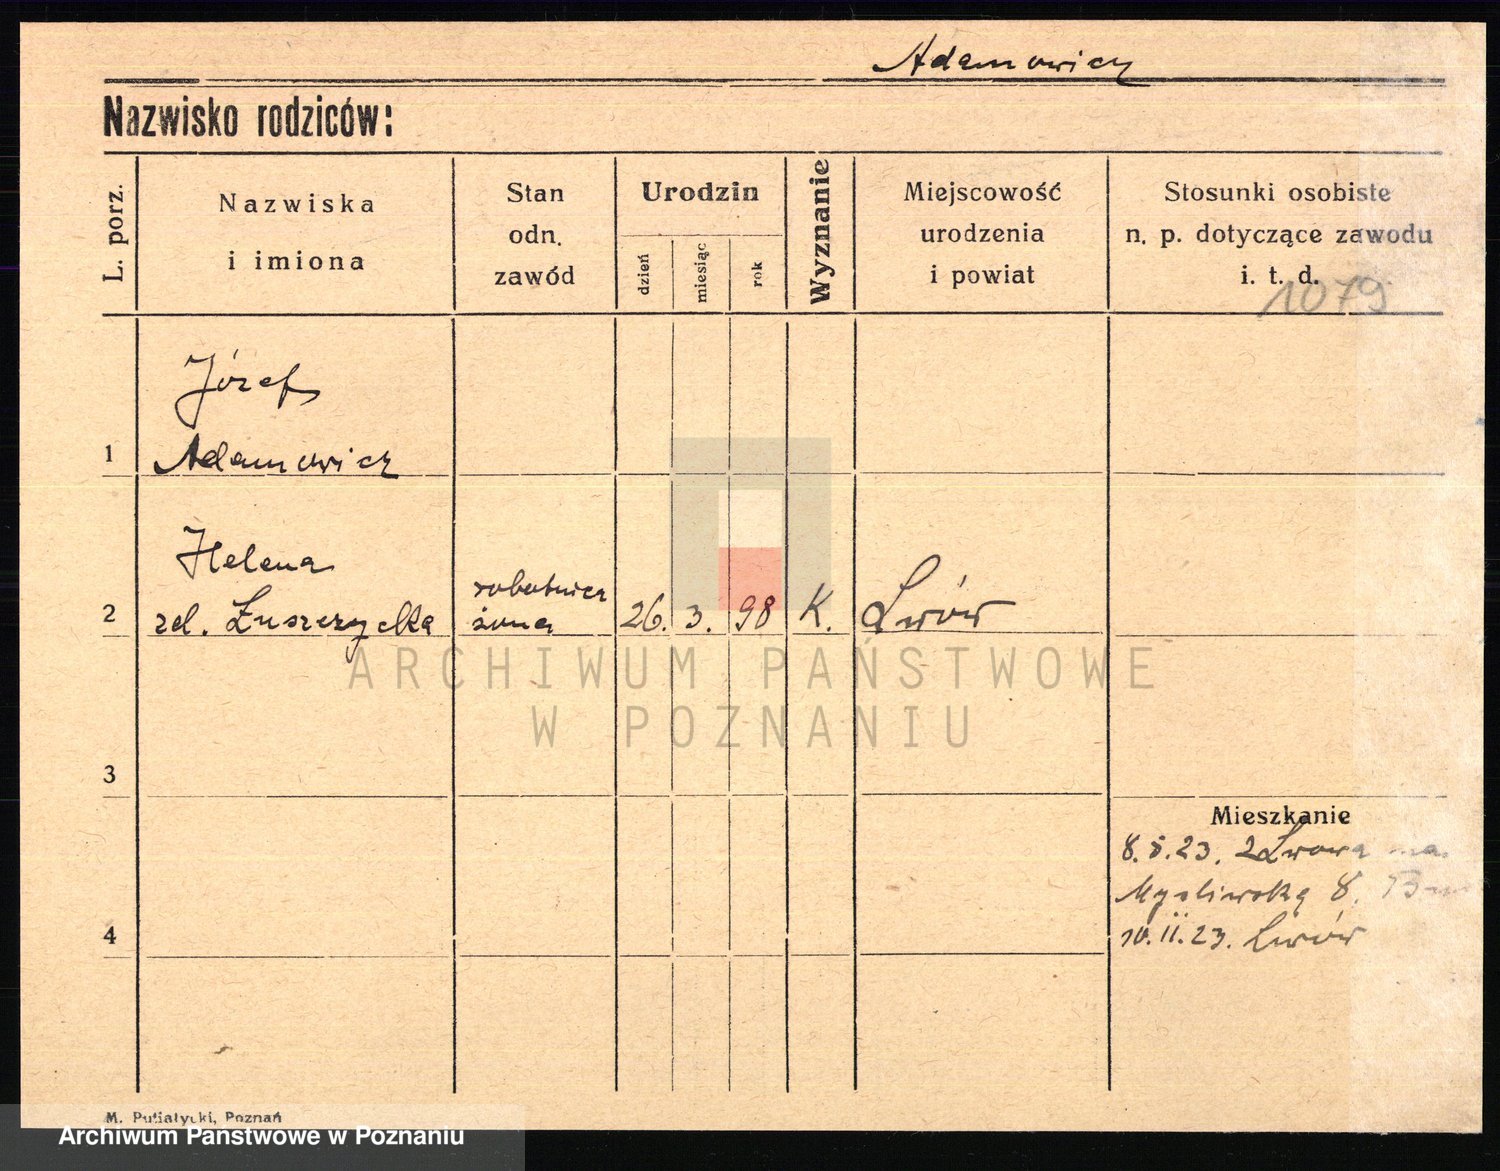 Adamowicz
Nazwisko rodziców:
L. porz.
Nazwiska
i imiona
Stan
odn.
zawód
Urodzin
dzień
miesiąc
rok
Wyznanie
Miejscowość
urodzenia
i powiat
Stosunki osobiste
n. p. dotyczące zawodu
i. t. d.
1079
Józef
1 Adamowicz
Helena
robotnica
2 zd. Łuszczycka żona 26. 3. 98 K. Lwów
ARCHIWUM PAŃSTWOWE
W POZNANIU
3
Mieszkanie
8. 8. 23. z Lwowa na
Myśliwską 8.
4
10. 11. 23. Lwów
M. Putiatycki, Poznań
Archiwum Państwowe w Poznaniu